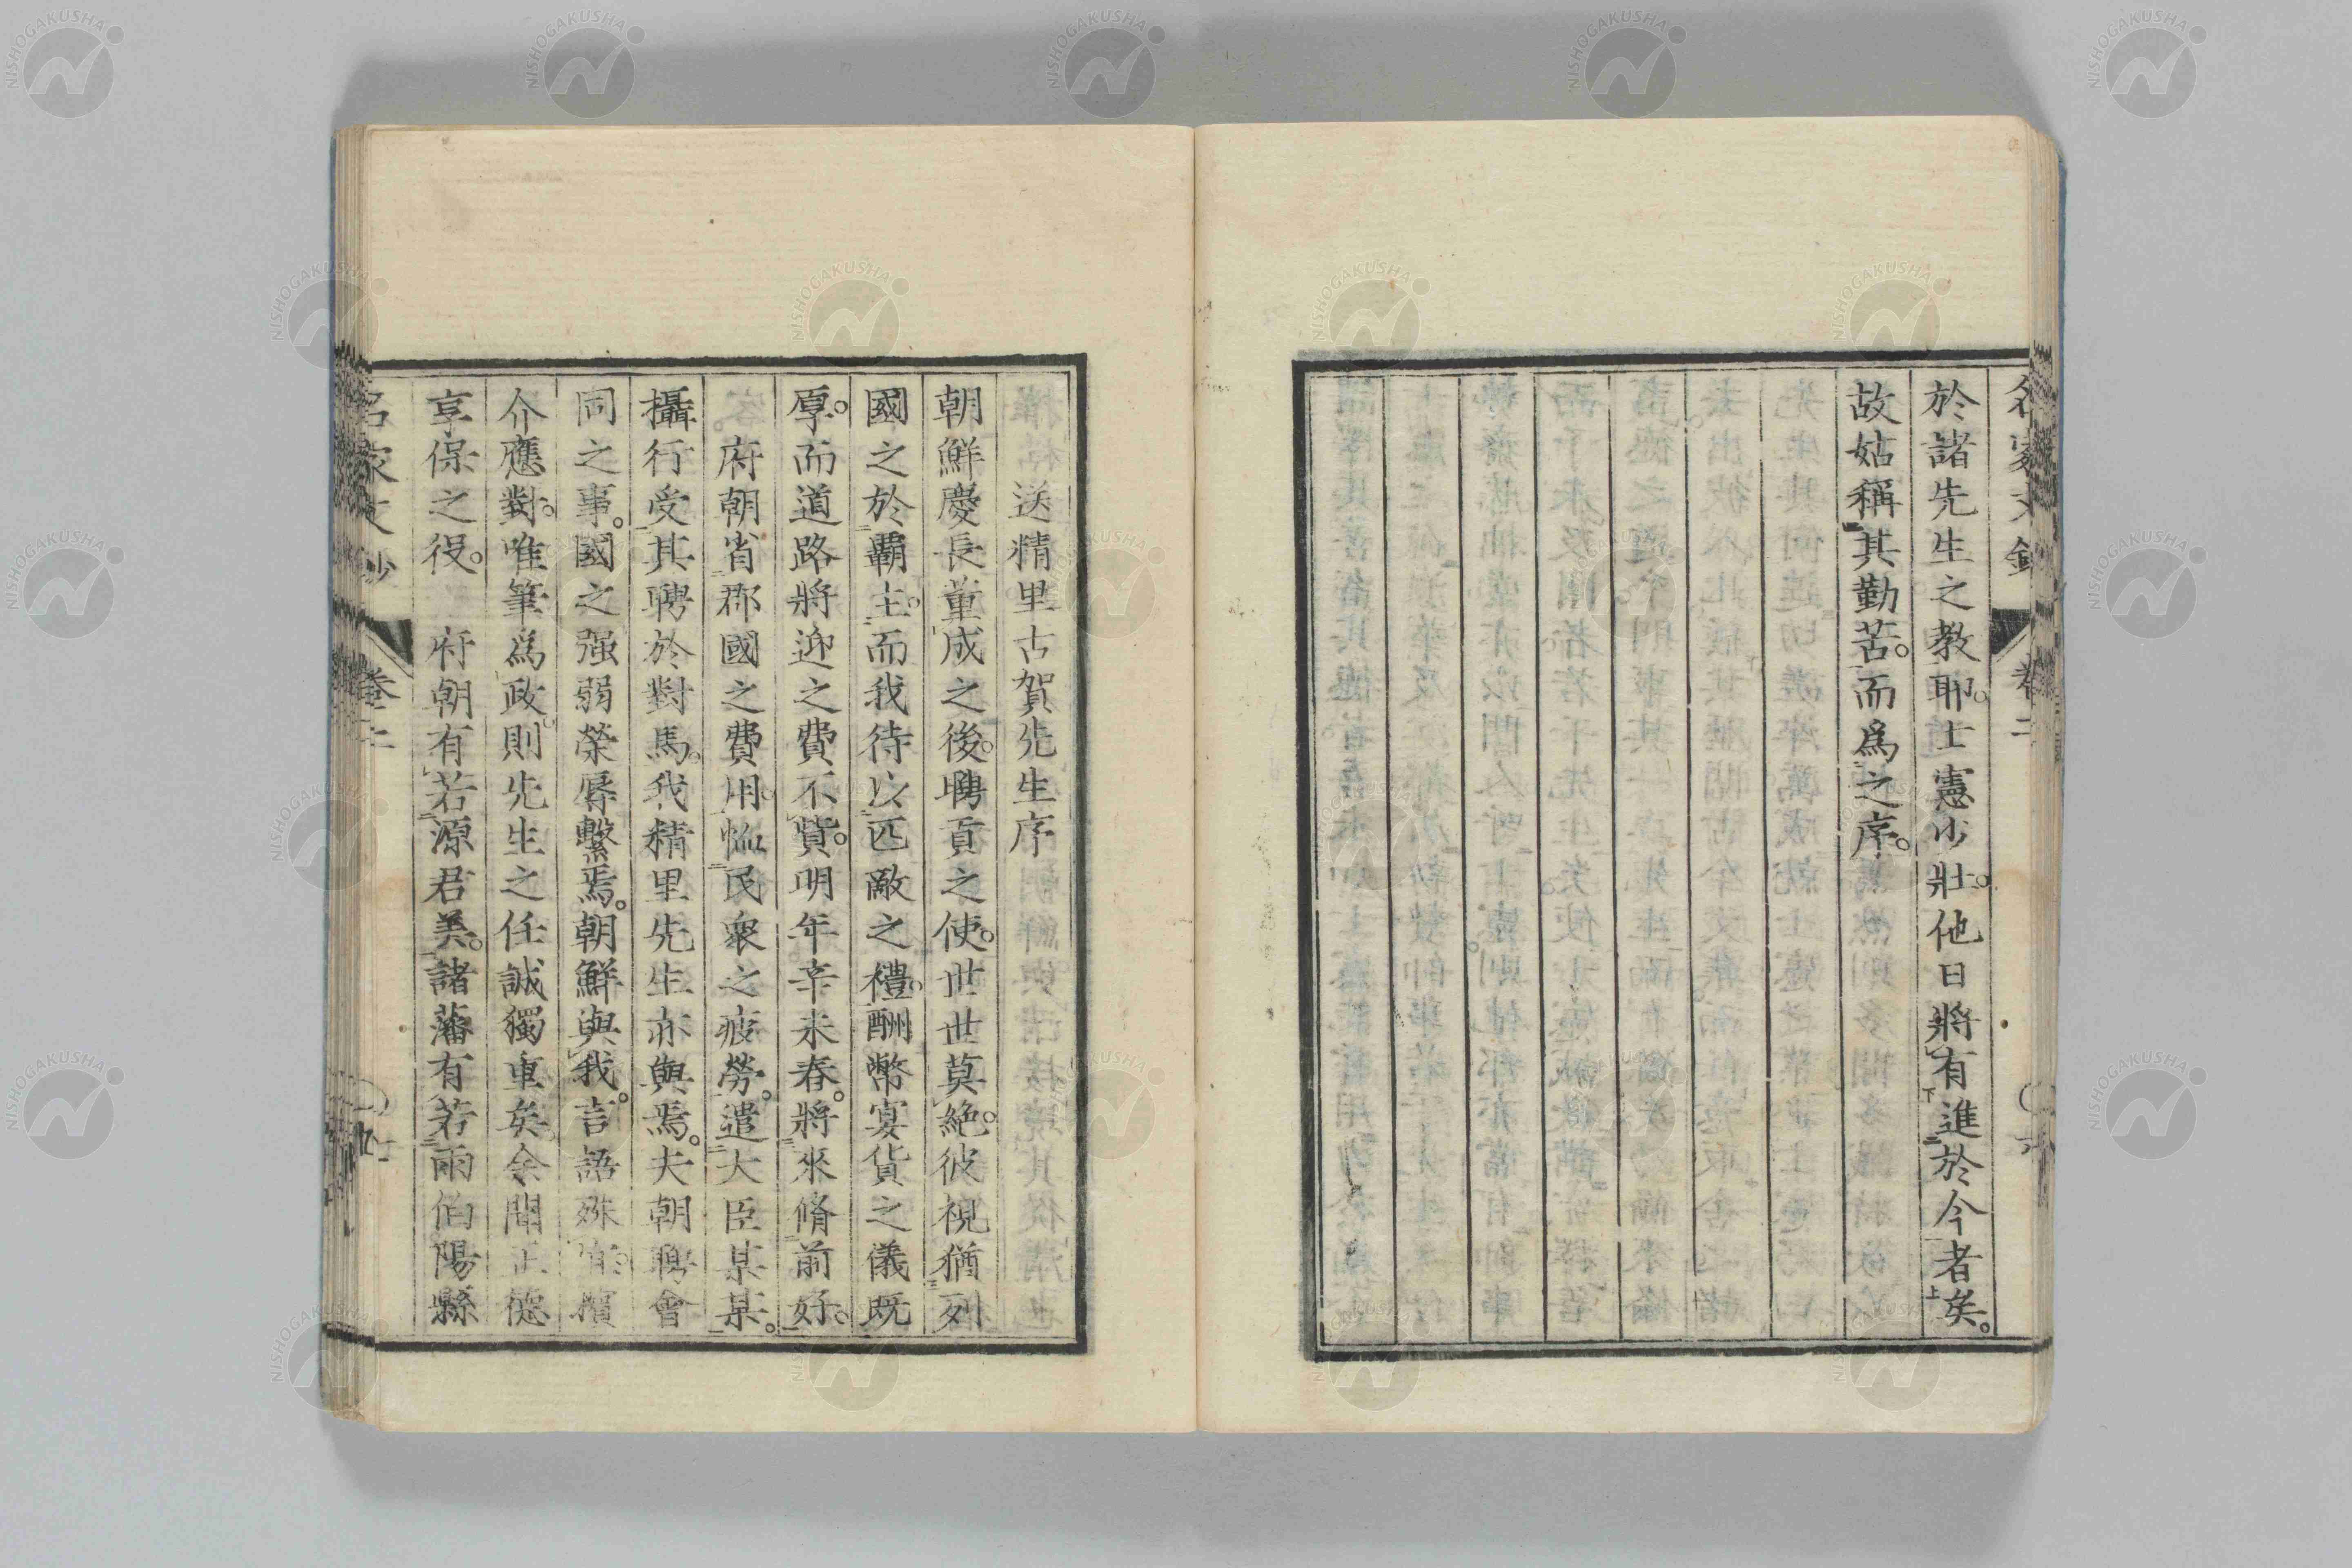 名家文鈔 卷二
於諸先生之教耶。士憲少壯。他日將有進於今者矣。
故姑稱其勤苦。而爲之序。
送精里古賀先生序
朝鮮慶長董成之後。聘貢之使。世世莫絶。彼視猶列
國之於覇主。而我待以匹敵之禮。酬幣宴貨之儀既
厚。而道路將迎之費不貲。明年辛未春。將來脩前好。
府朝省郡國之費用。恤民衆之疲勞。遣大臣某某。
攝行受其聘於對馬。我精里先生亦與焉。夫朝聘會
同之事。國之强弱榮辱繫焉。朝鮮與我。言語殊 擯
介應對。唯筆爲政。則先生之任誠獨重矣。余聞正德
享保之役。府朝有若源君美。諸藩有若雨伯陽縣
名家文鈔 卷二
NISHOGAKUSHA